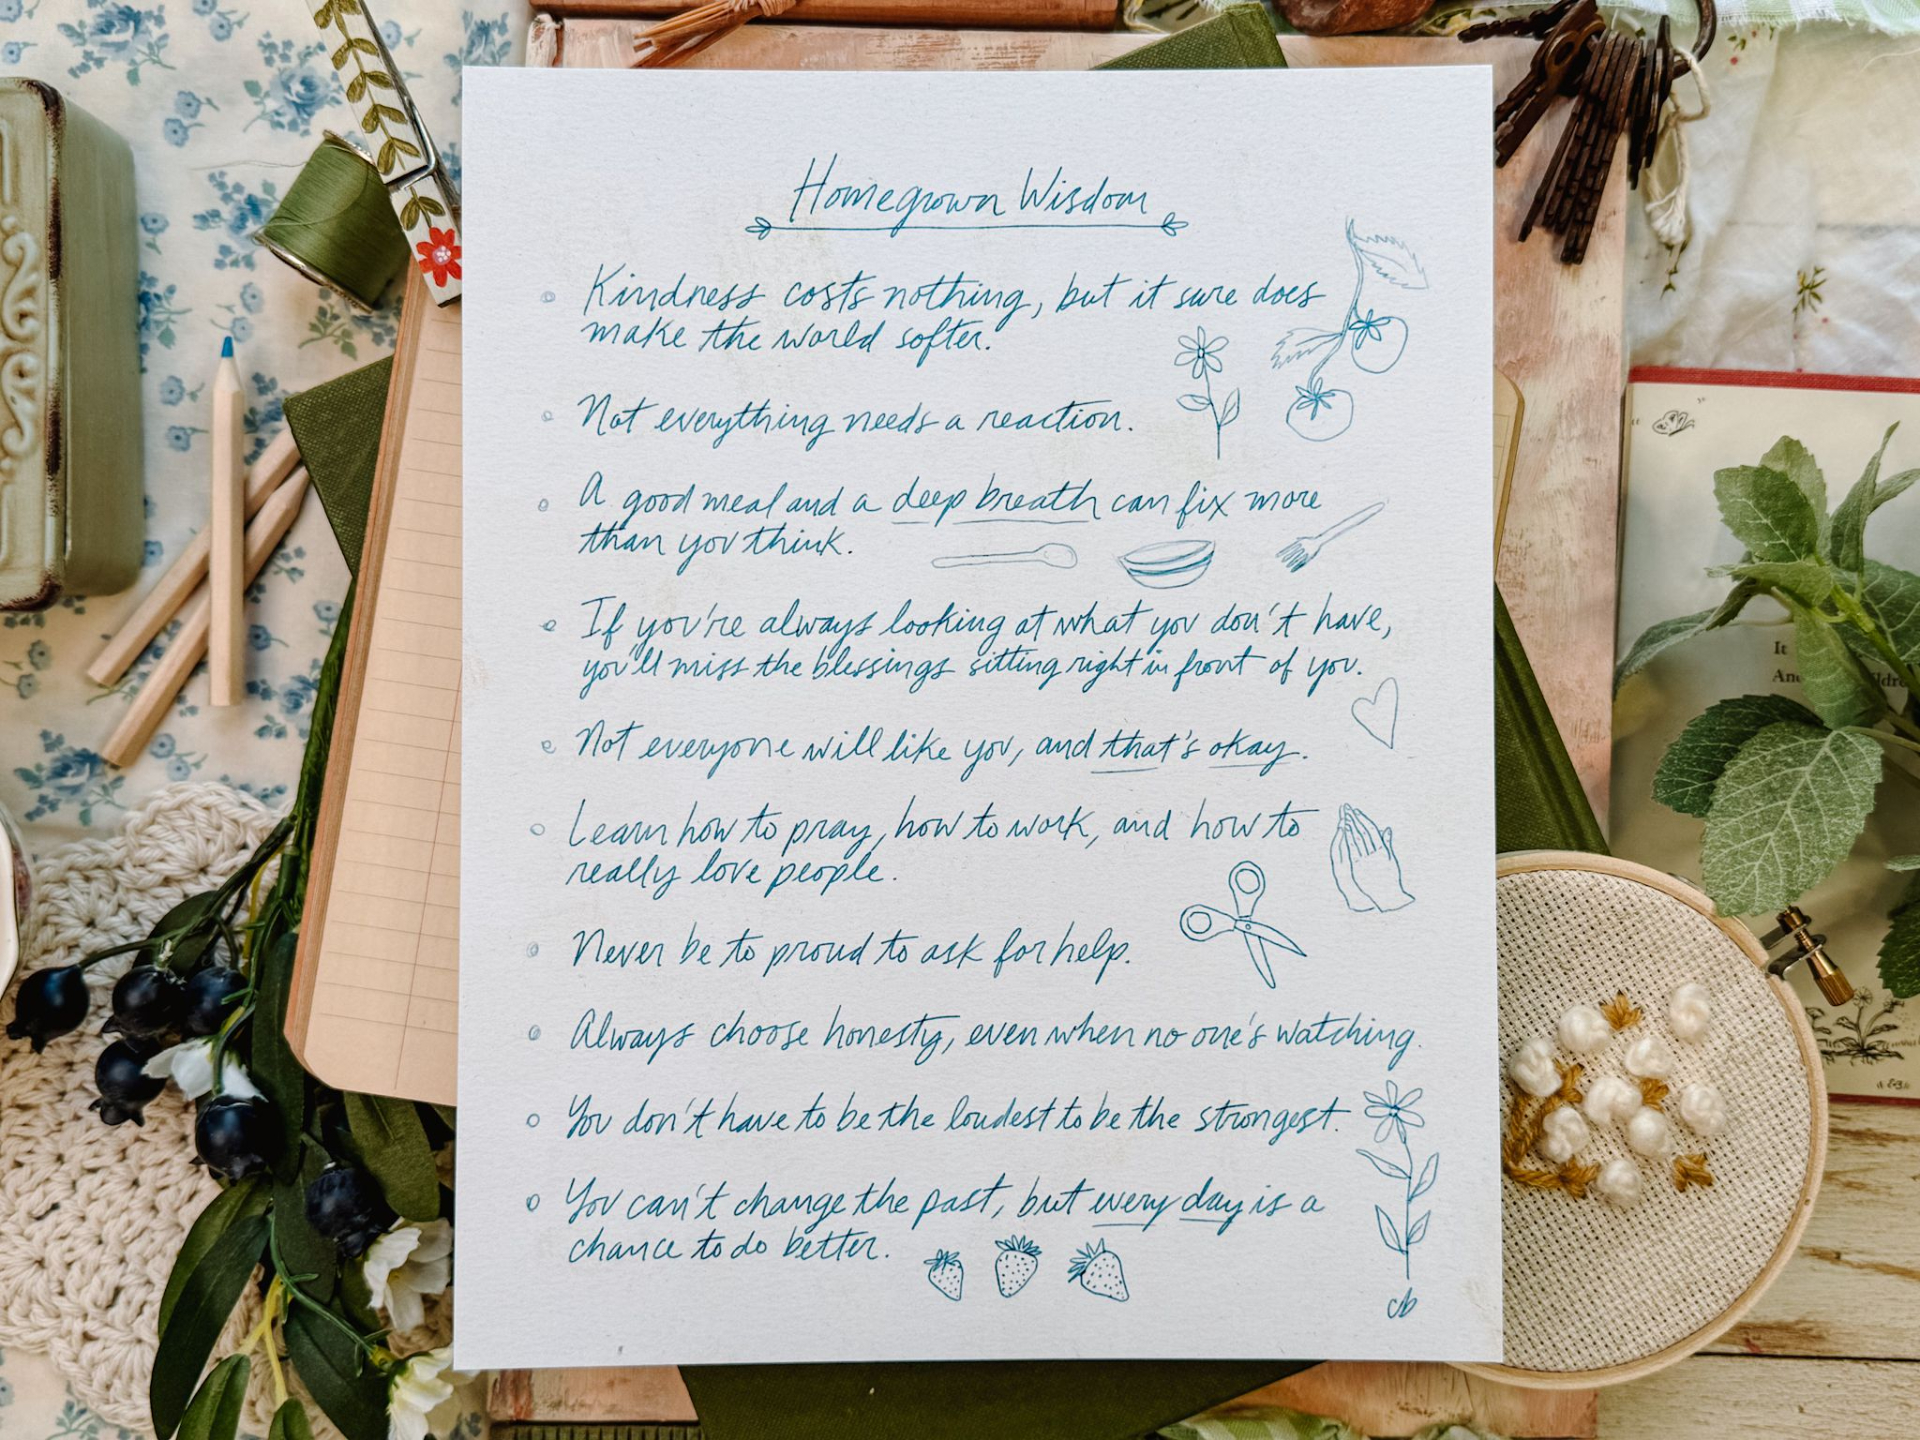 Homegrown Wisdom
Kindness costs nothing, but it sure does
make the world softer.
Not everything needs a reaction.
A good meal and a deep breath can fix more
than you think.
If you're always looking at what you don't have,
you'll miss the blessings sitting right in front of you.
Not everyone will like you, and that's okay.
Learn how to pray, how to work, and how to
really love people.
Never be to proud to ask for help.
Always choose honesty, even when no one's watching.
You don't have to be the loudest to be the strongest.
You can't change the past, but every day is a
chance to do better.
cb
It